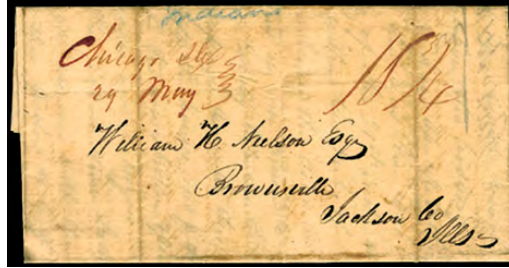 Indiana
Chicago Ills
29 May
18 3/4
William H. Nielson Esq
Brownsville
Jackson Co
Ills